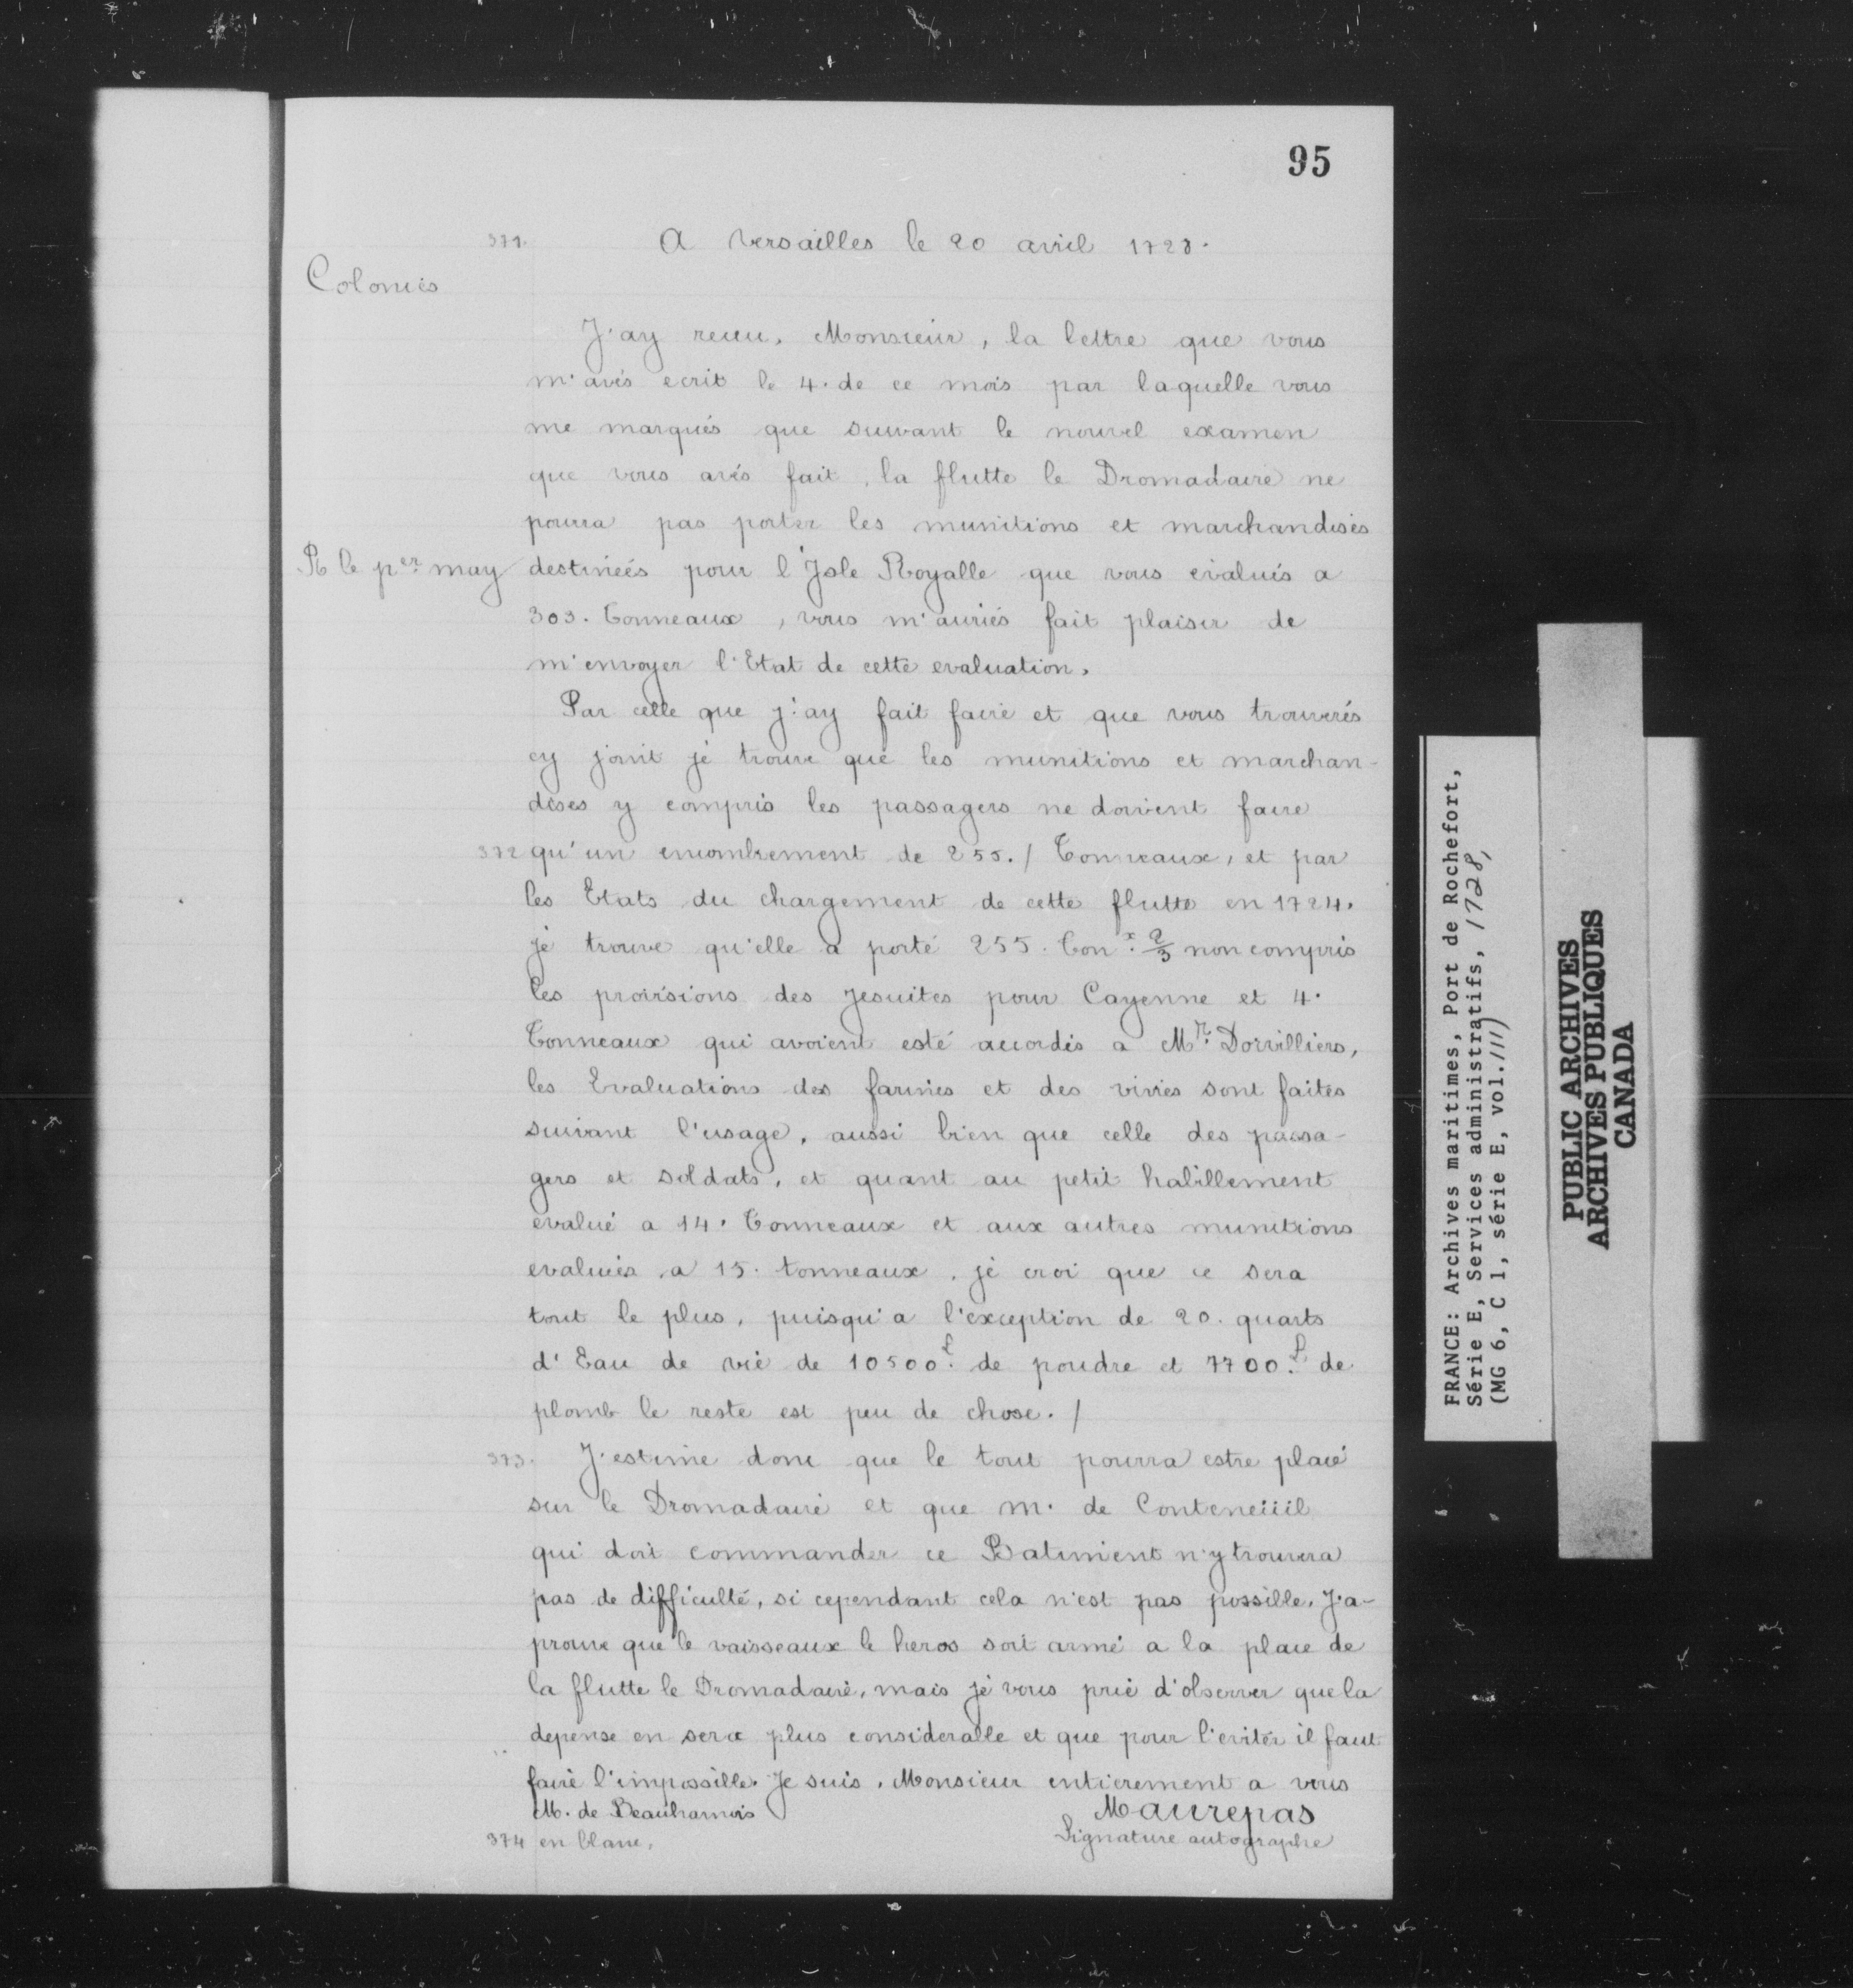 95
371. A Versailles le 20 avril 1728.
Colonies
J'ay receu, Monsieur, la lettre que vous
m'avés ecrit le 4. de ce mois par laquelle vous
me marqués que suivant le nouvel examen
que vous avés fait, la flutte le Dromadaire ne
pourra pas porter les munitions et marchandises
R le per. may destineés pour l'Isle Royalle que vous evalués a
303. Tonneaux, vous m'auriés fait plaisir de
m'envoyer l'Etat de cette evaluation.
Par celle que j'ay fait faire et que vous trouverés
cy joint je trouve que les munitions et marchan-
dises y compris les passagers ne doivent faire
372 qu'un encombrement de 255. / Tonneaux, et par
les Etats du chargement de cette flutte en 1724.
je trouve qu'elle a porté 255. Tonx. 2/3 non compris
les provisions des Jesuites pour Cayenne et 4.
Tonneaux qui avoient esté accordés a Mr. Dorvilliers,
les Evaluations des farines et des vivres sont faites
suivant l'usage, aussi bien que celle des passa-
gers et soldats, et quant au petit habillement
evalué a 14. Tonneaux et aux autres munitions
evaluées a 15. tonneaux, je croi que ce sera
tout le plus, puisqu'a l'exception de 20. quarts
d'Eau de vie de 10500l. de poudre et 7700l. de
plomb le reste est peu de chose. /
373. J'estime donc que le tout pourra estre placé
sur le Dromadaire et que m. de Conteneüil
qui doit commander ce Batiment n'y trouvera
pas de difficulté, si cependant cela n'est pas possible, J'a-
prouve que le vaisseaux le heros soit armé a la place de
la flutte le Dromadaire, mais je vous prie d'observer que la
depense en sera plus considerable et que pour l'eviter il faut
faire l'impossible. Je suis, Monsieur entierement a vous
M. de Beauharnois Maurepas
374 en blanc. Signature autographe
FRANCE: Archives maritimes, Port de Rochefort,
Série E, Services administratifs, 1728,
(MG 6, C 1, série E, vol. 111)
PUBLIC ARCHIVES
ARCHIVES PUBLIQUES
CANADA